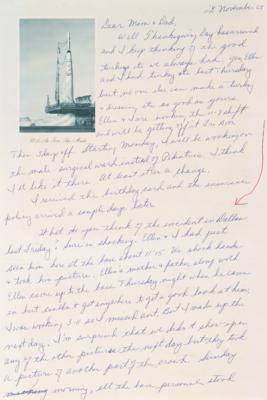 28 November 63
Dear Mom & Dad,
Well Thanksgiving Day has arrived
and I keep thinking of the good
turkey etc we always had. Yes, Ellen
and I had turkey etc last Thursday
but no one else can make a turkey
& dressing etc as good as yours.
Ellen & I are working the 11-7 shift
and will be getting off at
Then sleep off. Starting Monday, I will be working on
the male surgical ward instead of Pediatrics. I think
I'll like it there. At least it's a change.
I received the birthday card and the insurance
policy arrived a couple days later.
What do you think of the incident in Dallas
last Friday? Sure is shocking. Ellen & I had just
seen him here at the base about 11:15 We shook hands
& took his picture. Ellen's mother & father along with
Ellen came up to the base Thursday night when he came
in but couldn't get anywhere to get a good look at him.
I was working 3-11 so I missed out But I made up the
next day. I'm surprised that we didn't show up on
any of the other pictures the next day but they took
a picture of another part of the crowd. Sunday
morning, all the base personnel stood